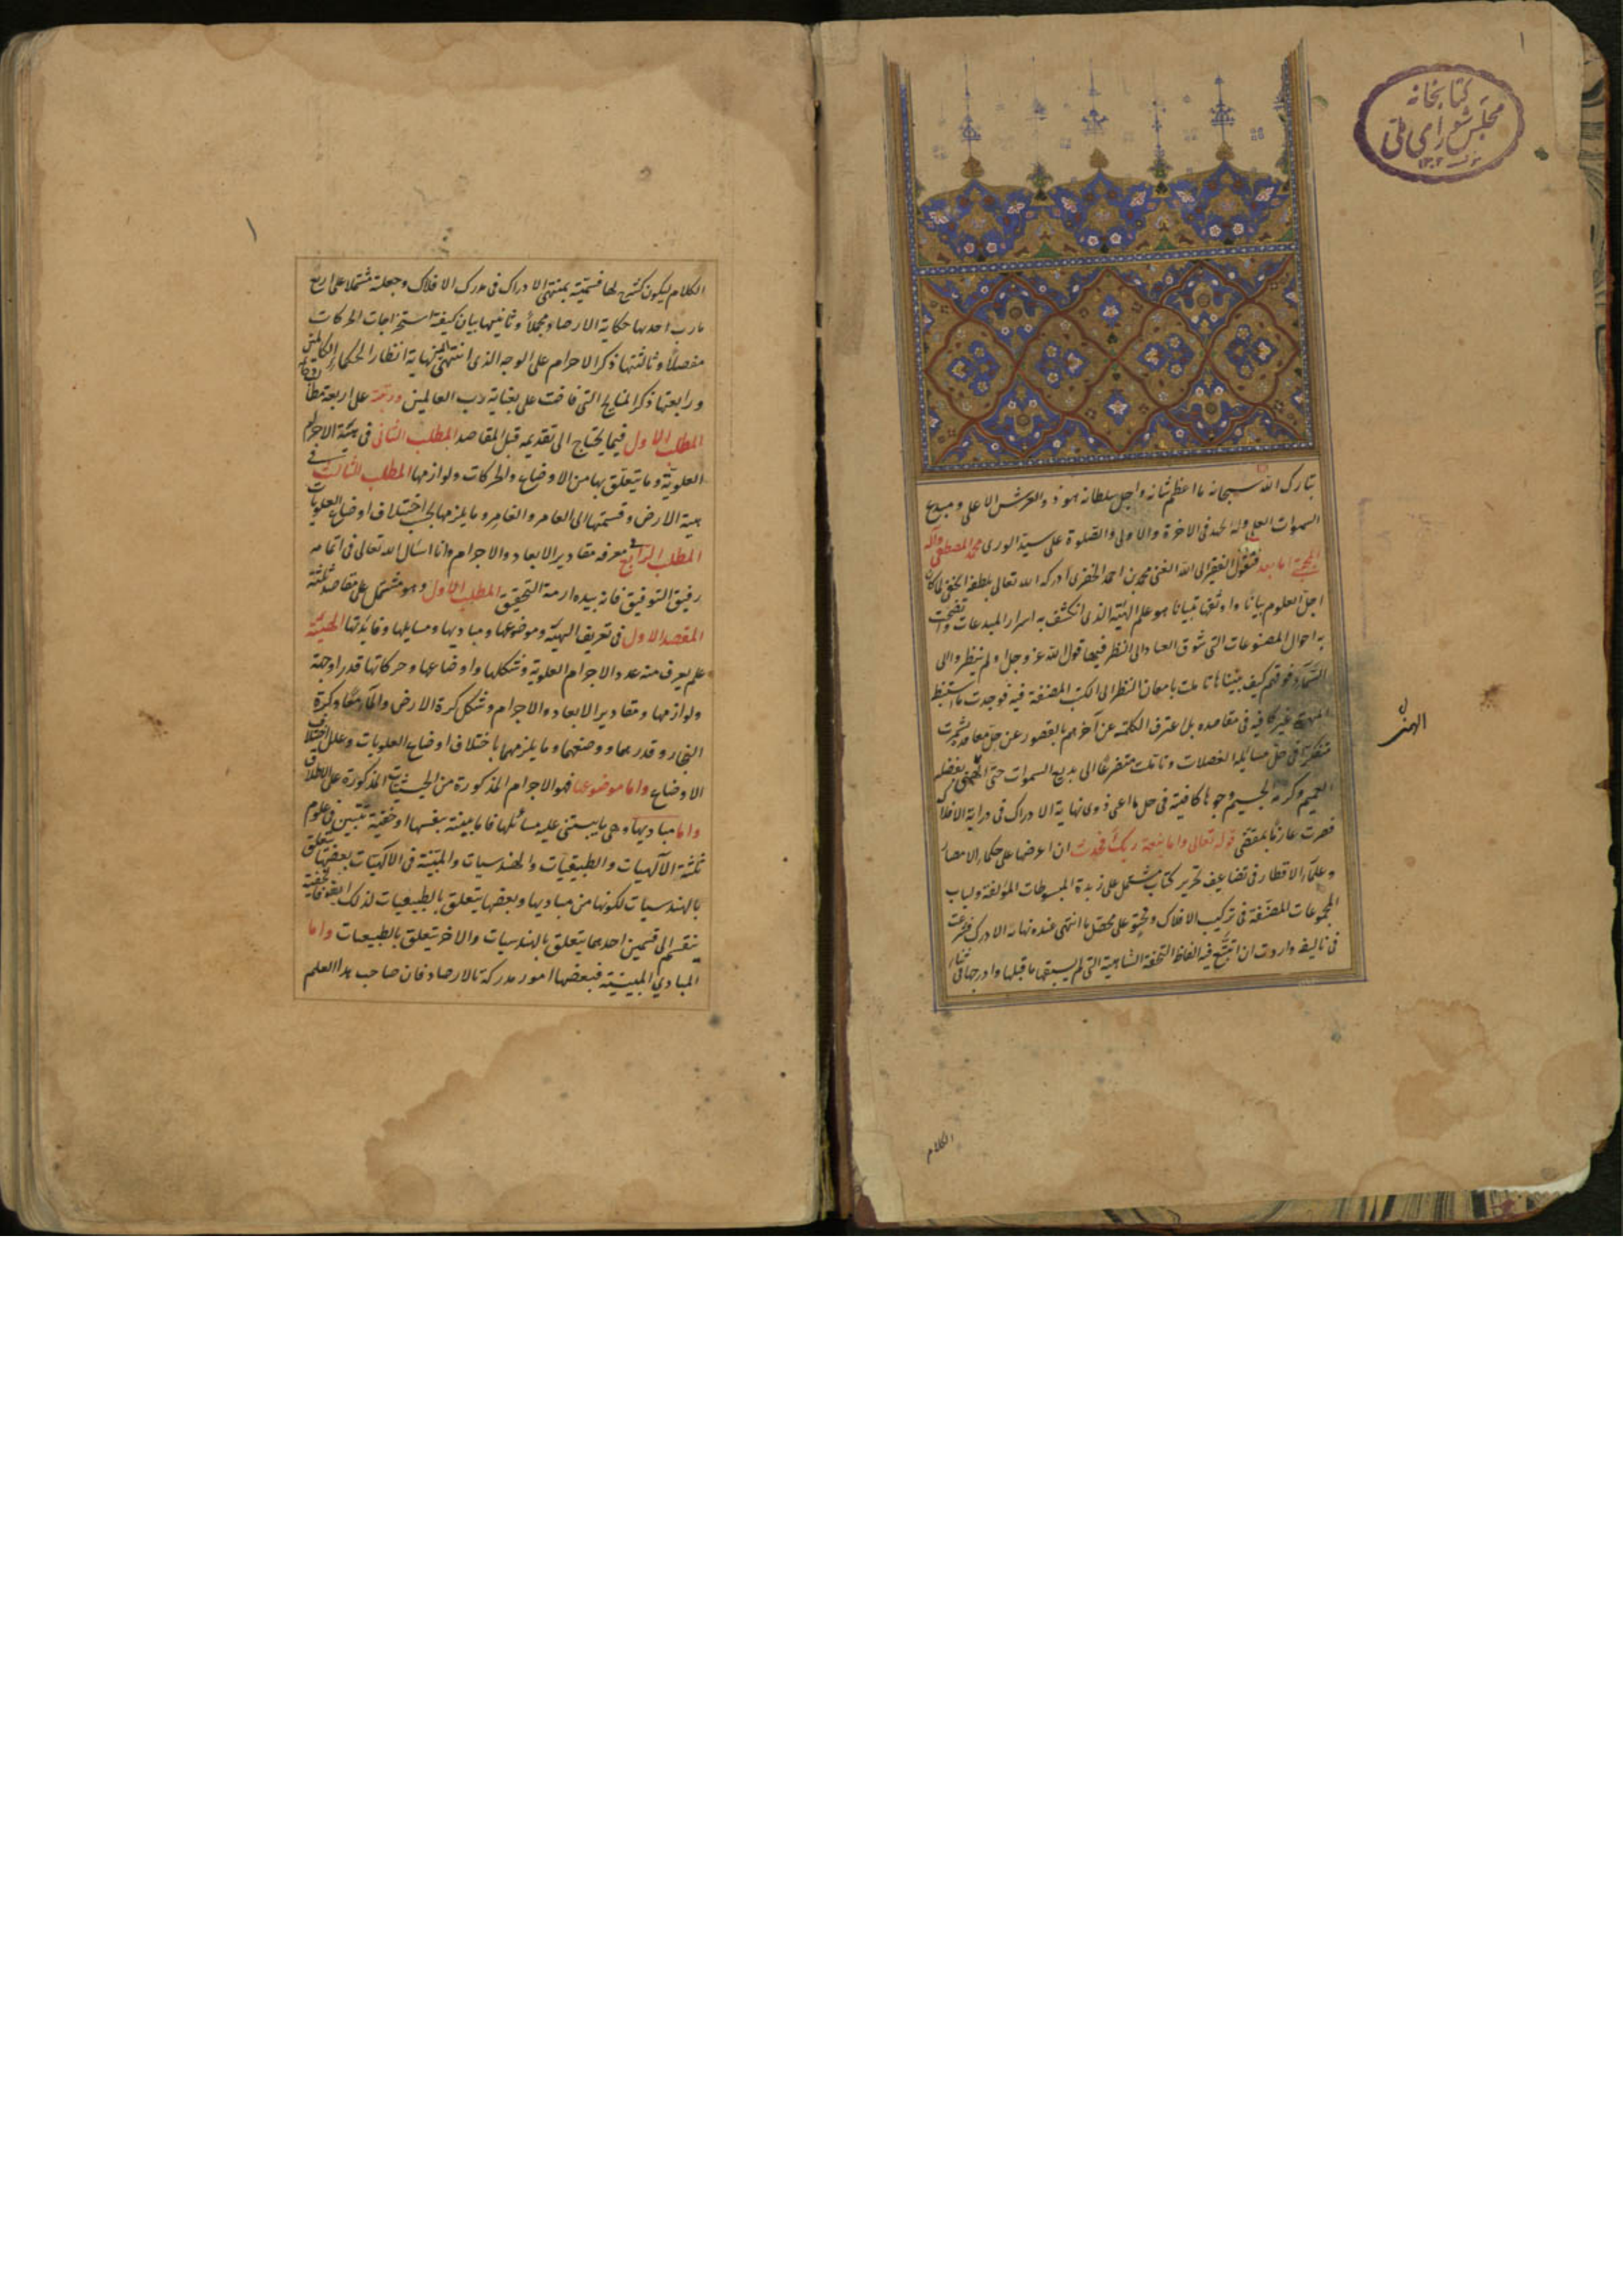 ١
کتابخانه
مجلس شورای ملی
١٣٠٢
تبارك الله سبحانه ما اعظم شانه واجل سلطانه هو ذو العرش الاعلى ومبدع
السموات العلى وله الحمد فى الاخرة والاولى والصلوة على سيد الورى محمد المصطفى وآله
اما بعد فيقول الفقير الى الله الغنى محمد بن احمد الخفرى ادركه الله تعالى بلطفه الخفى لما كان
اجل العلوم بيانا واوثقها تبيانا هو علم الهيئة الذى انكشف به اسرار المبدعات واتضحت
به احوال المصنوعات التى شوق العباد الى النظر فيها قول الله عز وجل اولم ينظروا الى
السماء فوقهم كيف بنيناها تاملت بامعان النظر الى الكتب المصنفة فيه فوجدت ما استنبط
غير كافية فى مقاصده بل اعترف الكلمة عن آخرهم بالقصور عن حل معاقده فشمرت
متفكرا فى حل مسائله المعضلات وتاملت متضرعا الى بديع السموات حتى الهمنى بفضله
العميم وكرمه الجسيم وجوها كافية فى حل ما اعى ذوى نهاية الادراك فى دراية الافلاك
فصرت عازما بمقتضى قوله تعالى واما بنعمة ربك فحدث ان اعرضها على حكماء الامصار
وعلماء الاقطار فى تضاعيف تحرير كتاب مشتمل على زبدة المبسوطات المؤلفة ولباب
المجموعات المصنفة فى تركيب الافلاك ومحتو على محصل ما انتهى عنده نهاية الادراك فشرعت
فى تاليفه واردت ان اتتبع فيه الفاظ التحفة الشاهية التى لم يسبقها ما قبلها وادرجها فى
الكلام
١
الكلام ليكون كشرح لها فسميته بمنتهى الادراك فى مدرك الافلاك وجعلته مشتملا على اربع
مارب احدها حكاية الارصاد مجملا وثانيها بيان كيفية استخراجات الحركات
مفصلا وثالثتها ذكر الاجرام على الوجه الذى انتهى اليه نهاية انظار الحكماء الكاملين
ورابعتها ذكر النتايج التى فاضت على بعناية رب العالمين ورتبته على اربعة مطالب
المطلب الاول فيما يحتاج الى تقديمه قبل المقاصد المطلب الثانى فى هيئة الاجرام
العلوية وما يتعلق بها من الاوضاع والحركات ولوازمها المطلب الثالث فى
هيئة الارض وقسمتها الى العامر والغامر وما يلزمها بحسب اختلاف اوضاع العلويات
المطلب الرابع فى معرفة مقادير الابعاد والاجرام وانا اسال الله تعالى فى اتمامه
رفيق التوفيق فانه بيده ازمة التحقيق المطلب الاول وهو مشتمل على مقاصد ثلثة
المقصد الاول فى تعريف الهيئة وموضوعها ومباديها ومسايلها وفائدتها الهيئة
علم يعرف منه عدد الاجرام العلوية وشكلها واوضاعها وحركاتها قدرا وجهة
ولوازمها ومقادير الابعاد والاجرام وشكل كرة الارض والماء معا وكرة
البخار وقدرهما ووضعهما وما يلزمهما باختلاف اوضاع العلويات وعلل اختلاف
الاوضاع واما موضوعها فهو الاجرام المذكورة من الحيثيات المذكورة على الاطلاق
واما مباديها وهى ما يبتنى عليه مسائلها فاما بينة بنفسها او خفية تتبين فى علوم
ثلثة الآلهيات والطبيعيات والهندسيات والمبينة فى الآلهيات بعضها يتعلق
بالهندسيات لكونها من مباديها وبعضها يتعلق بالطبيعيات لذلك
ينقسم الى قسمين احدهما يتعلق بالهندسيات والاخر يتعلق بالطبيعيات واما
المبادى المبينة فبعضها امور مدركة بالارصاد فان صاحب هذا العلم